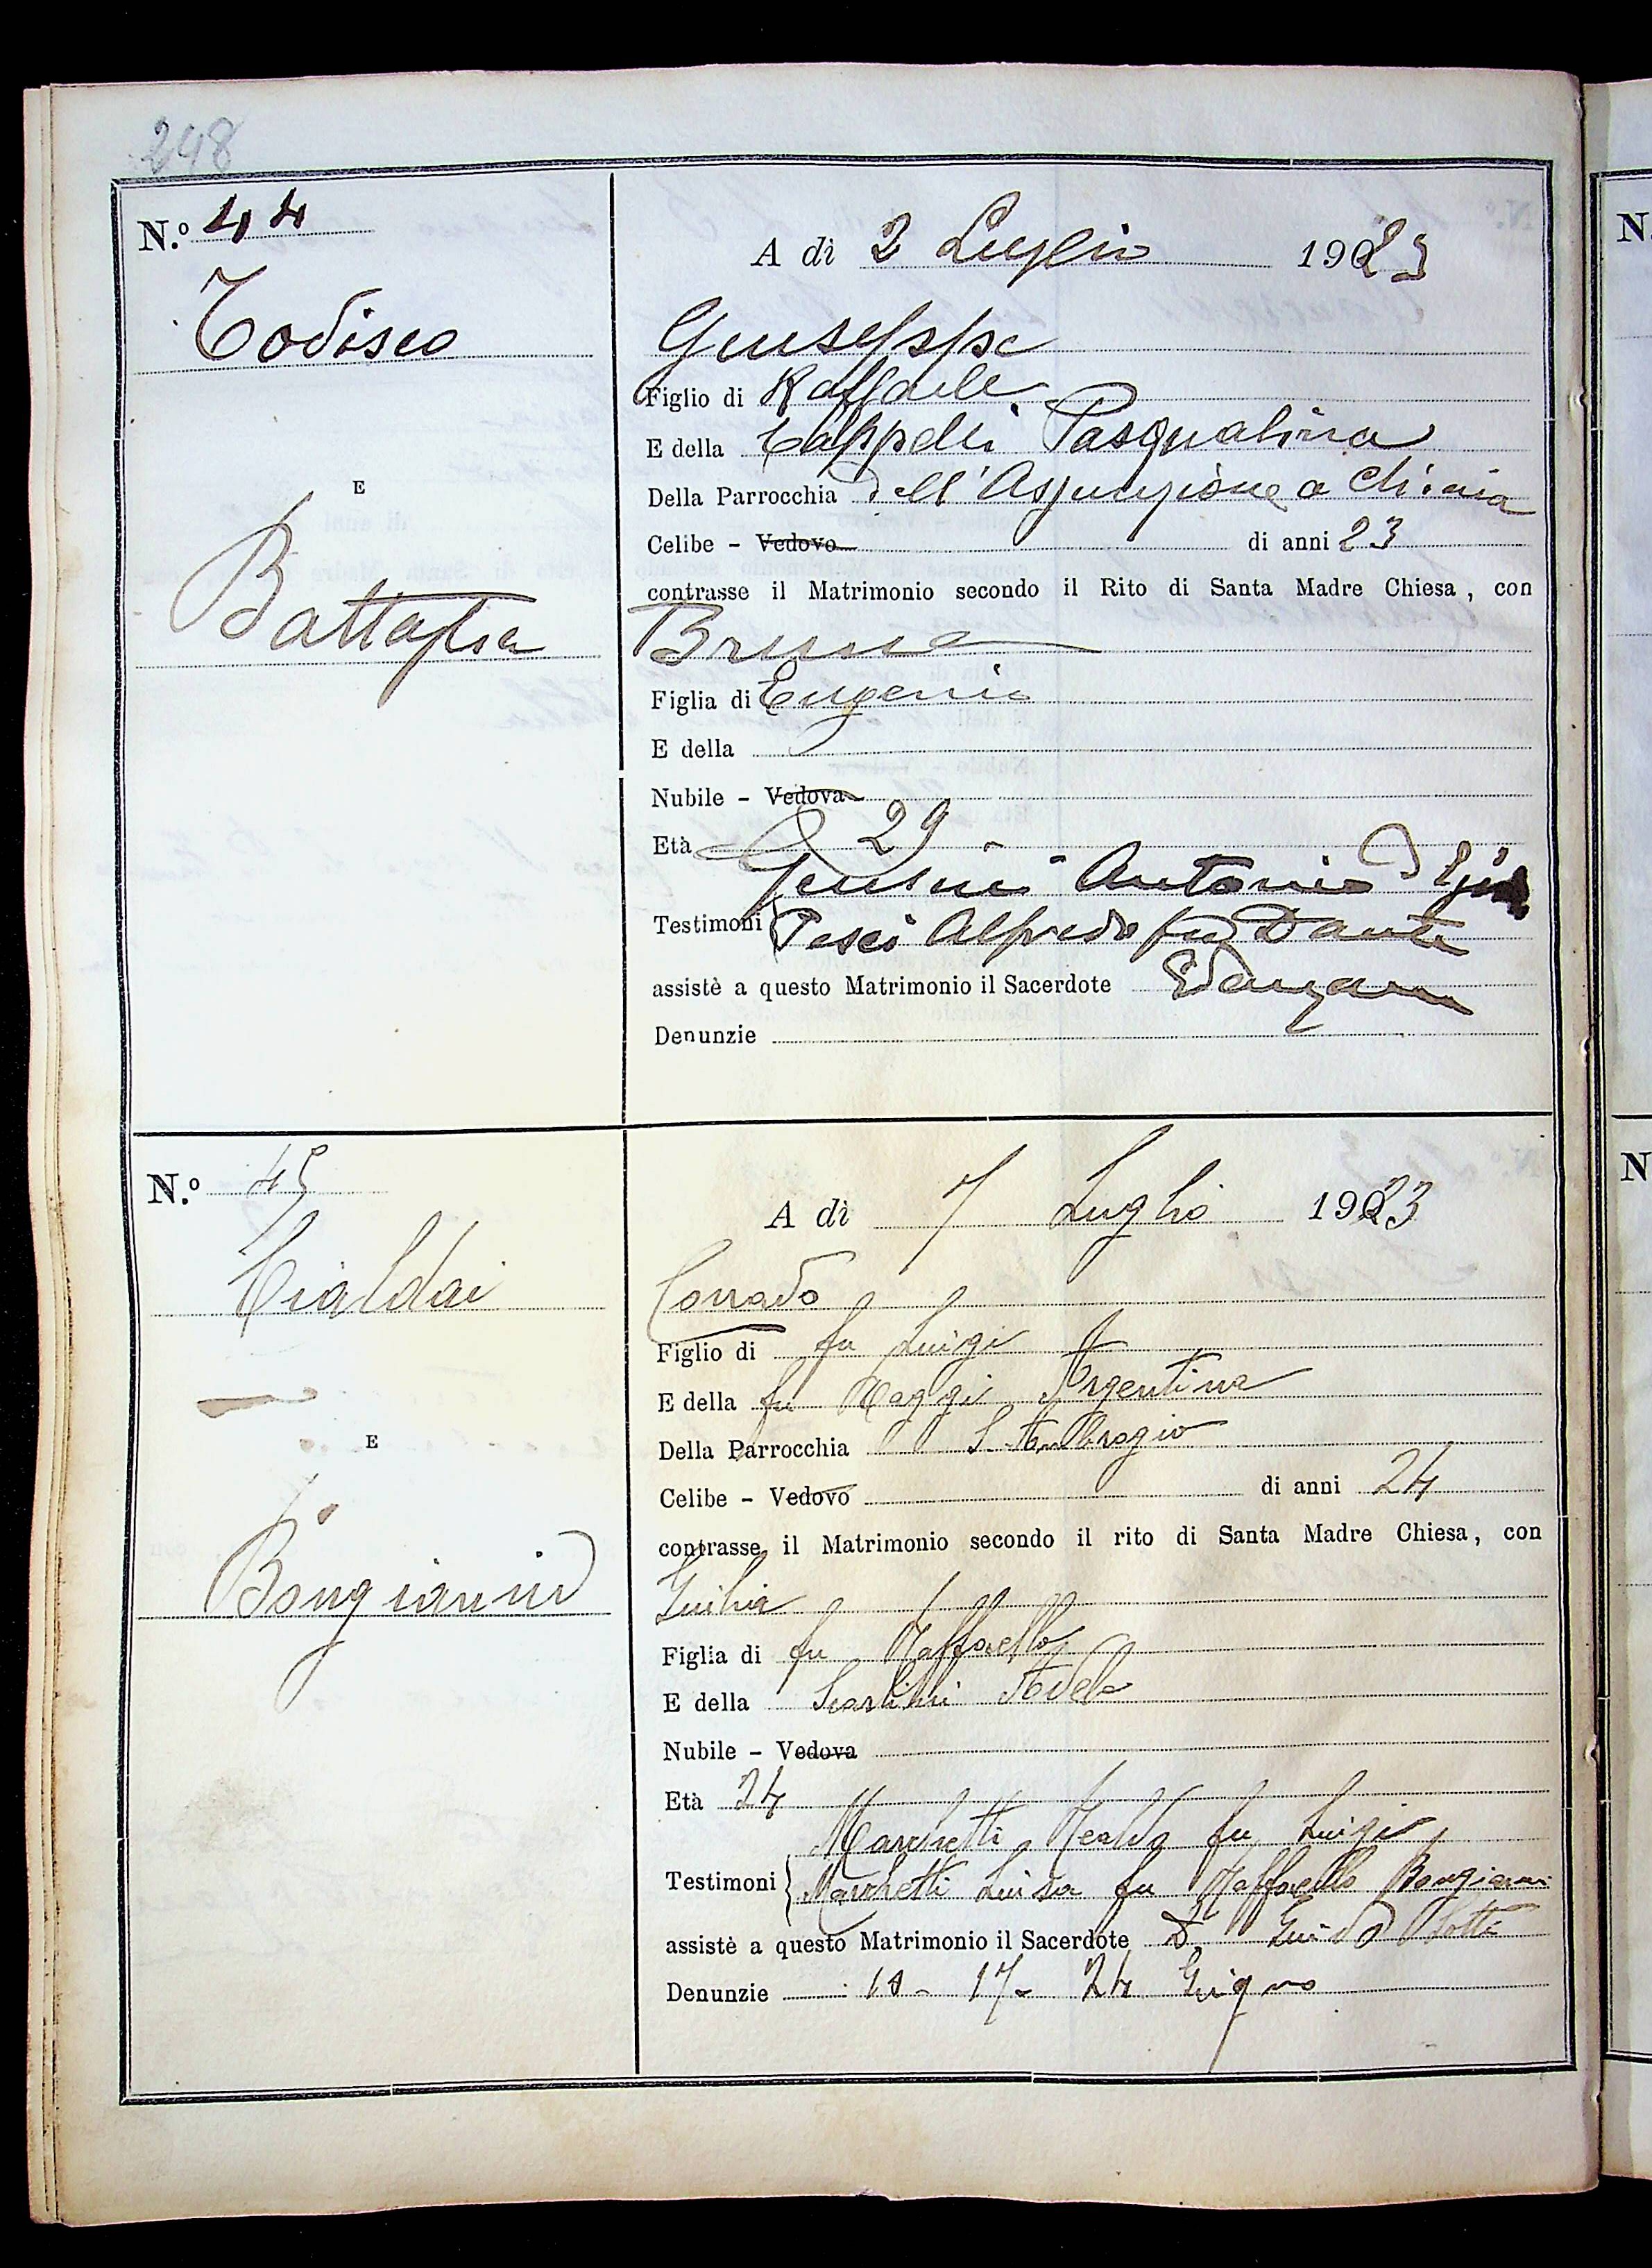 248
N.º 44
A dì 2 Luglio 1923
Todisco
Giuseppe
Figlio di Raffaele
E della Cappelli Pasqualina
E
Della Parrocchia dell'Assunzione a Chiaia
Celibe - Vedovo di anni 23
contrasse il Matrimonio secondo il Rito di Santa Madre Chiesa, con
Battaglia
Bruna
Figlia di Eugenio
E della
Nubile - Vedova
Età 29
Antonio di
Testimoni Pesci Alfredo fu Dante
assistè a questo Matrimonio il Sacerdote
Denunzie
N.º 45
A dì 7 Luglio 1923
Cialdai
Corrado
Figlio di fu Luigi
E della fu Maggi Argentina
E
Della Parrocchia S. Ambrogio
Celibe - Vedovo di anni 24
contrasse il Matrimonio secondo il rito di Santa Madre Chiesa, con
Bongianni
Giulia
Figlia di fu Raffaello
E della Scarlini Adele
Nubile - Vedova
Età 24
Marchetti fu Luigi
Testimoni Marchetti Luisa fu Raffaello Bongianni
assistè a questo Matrimonio il Sacerdote D. Guido
Denunzie 10 - 17 - 24 Giugno
N
N